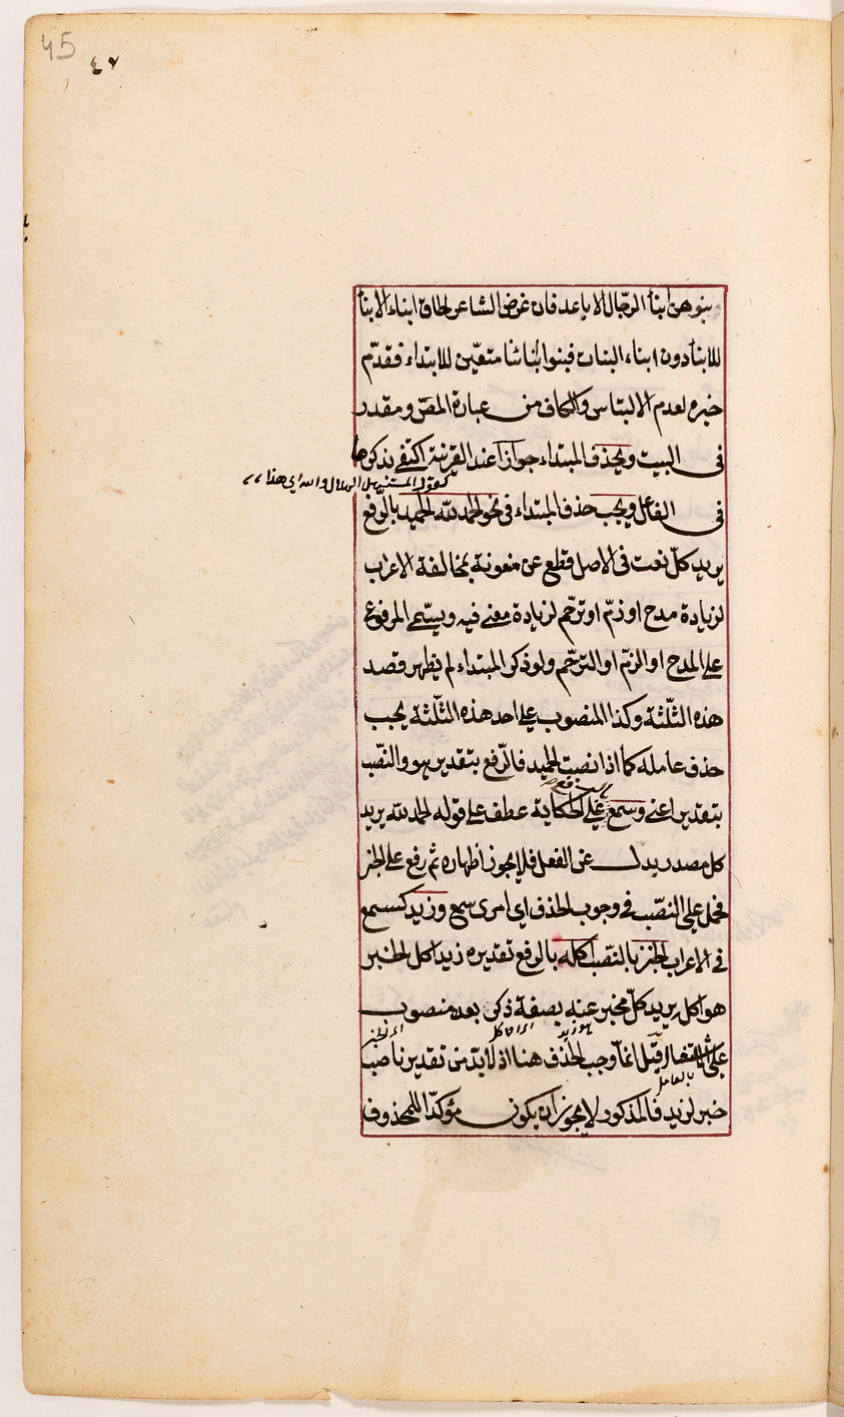 45
٤٧
بنوهن ابنأ الرّجال الاباعد فان غرض الشاعر الحاق ابناء الابنأ
للابنأ دون ابناء البنات فبنوا ابنائنا متعيّن للابتداء فقدّم
خبره لعدم الالتباس والكاف من عبارة المص ومقدر
فى البيت ويحذف المبتداء جوازا عند القرنية اكتفى بذكرها
كقول المستهل الهلال والله اى هذا
فى الفاعل ويجب حذف المبتداء فى نحو الحمد لله الحميد بالرّفع
يريد كلّ نعت فى الاصل قطع عن منعوته بمخالفة الاعراب
لزيادة مدح او ذمّ او ترحّم لزيادة معنى فيه ويسمّى المرفوع
على المدح او الذمّ او الترحّم ولو ذكر المبتداء لم يظهر قصد
هذه الثلثة وكذا المنصوب على احد هذه الثلثة يجب
حذف عامله كما اذا نصبت الحميد فالرّفع بتقدير هو والنصّب
بالرفع
بتقدير اعنى وسمع على الحكاية عطف على قوله الحمد لله يريد
كل مصدر يدل عن الفعل فلا يجوز اظهاره ثم رفع على الخبر
فحمل على النصّب فى وجوب الحذف اى امرى سمع وزيد كسمع
فى الاعراب الخبز بالنصّب اكله بالرفع تقديره زيد اكل الخبز
هو اكل يريد كلّ مخبر عنه بصفة ذكر بعده منصوب
هو زيد
على انما وجب الحذف هنا اذ لا بدّ من تقدير ناصب
بالعامل
خبر لزيد فالمذكور لا يجوز ان يكون مؤكدّا للمحذوف